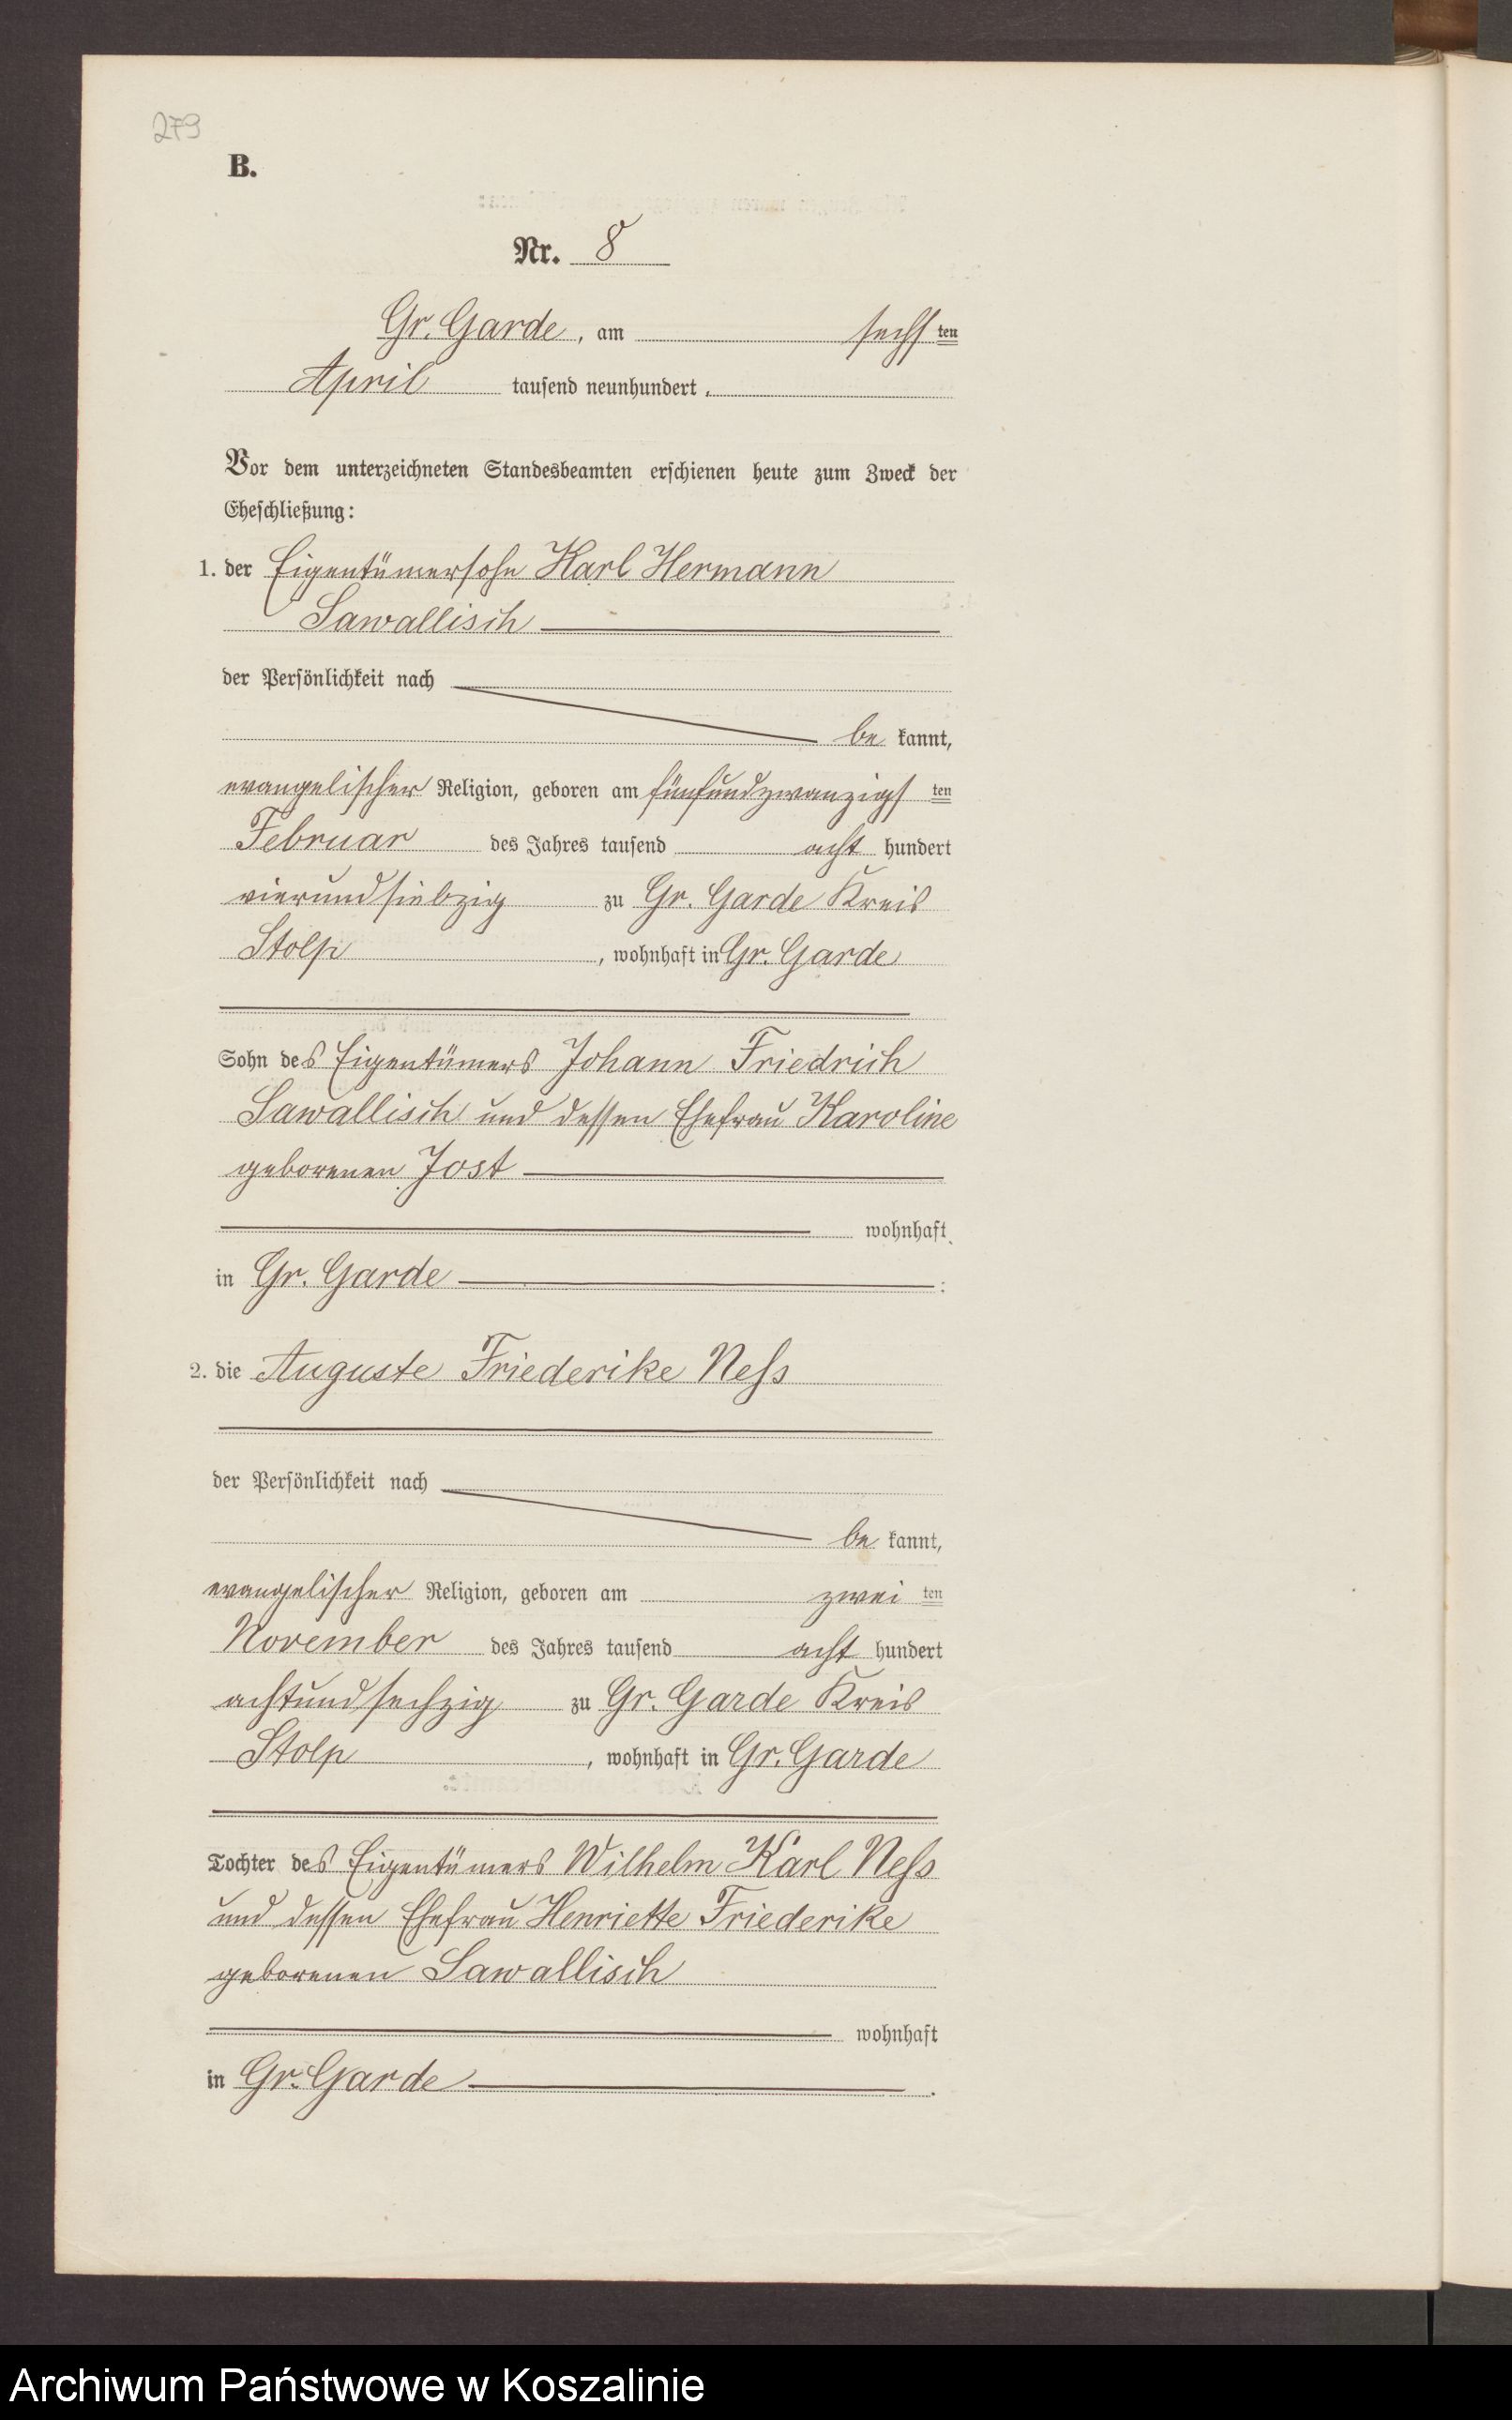 279
B.
Nr. 8
Gr. Garde, am sechsten
April tausend neunhundert
Vor dem unterzeichneten Standesbeamten erschienen heute zum Zweck der
Eheschließung:
1. der Eigentümersohn Karl Hermann
Sawallisch
der Persönlichkeit nach
be kannt,
evangelischer Religion, geboren am fünfundzwanzigsten
Februar des Jahres tausend acht hundert
vierundsiebzig zu Gr. Garde Kreis
Stolp, wohnhaft in Gr. Garde
Sohn des Eigentümers Johann Friedrich
Sawallisch und dessen Ehefrau Karoline
geborenen Jost
wohnhaft
in Gr. Garde
2. die Auguste Friederike Neſs
der Persönlichkeit nach
be kannt,
evangelischer Religion, geboren am zweiten
November des Jahres tausend acht hundert
achtundsechzig zu Gr. Garde Kreis
Stolp, wohnhaft in Gr. Garde
Tochter des Eigentümers Wilhelm Karl Neſs
und dessen Ehefrau Henriette Friederike
geborenen Sawallisch
wohnhaft
in Gr. Garde
Archiwum Państwowe w Koszalinie